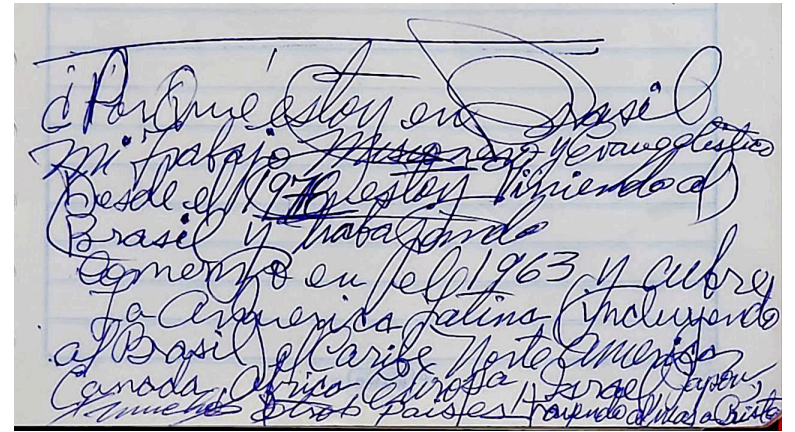 ¿Por Qué estoy en Brasil
mi trabajo Misionero y Evangelistico
(Desde el 1970 estoy Viniendo al
Brasil y trabajando
Comenzo en el 1963 y cubre
La America Latina (incluyendo
al Brasil) el Caribe Norte America
Canada, Africa Europa, Israel, Japon,
y muchos otros países trayendo almas a Cristo